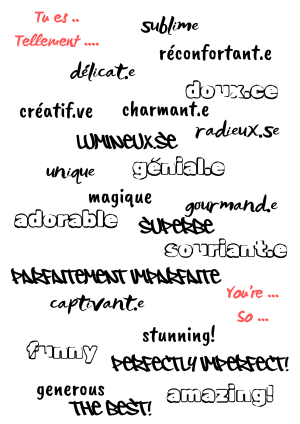 Tu es ..
Tellement ....
sublime
réconfortant.e
délicat.e
doux.ce
créatif.ve
charmant.e
radieux.se
LUMINEUX.SE
génial.e
unique
magique
gourmand.e
adorable
SUPERBE
souriant.e
PARFAITEMENT IMPARFAITE
captivant.e
You're ...
So ...
stunning!
funny
PERFECTLY IMPERFECT!
generous
amazing!
THE BEST!